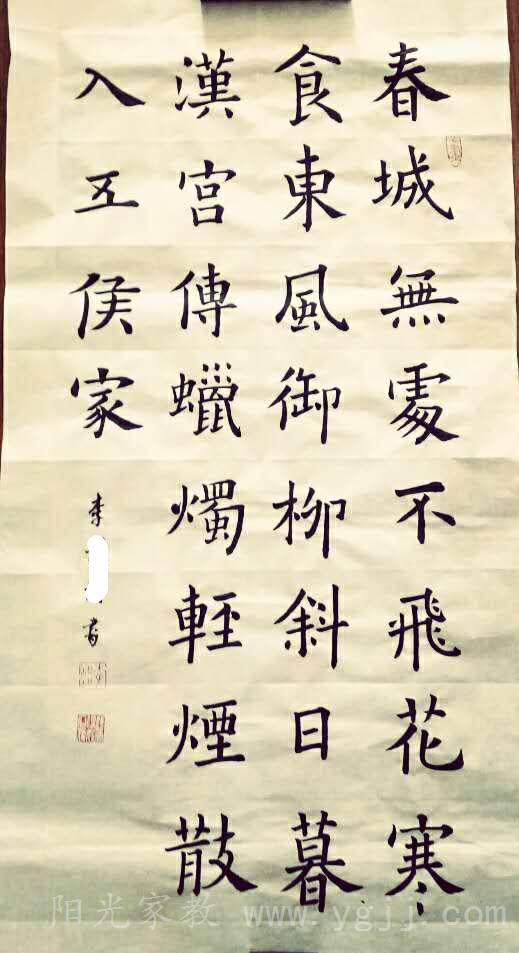 春城無處不飛花寒
食東風御柳斜日暮
漢宮傳蠟燭輕煙散
入五侯家
李 書
阳光家教 www.ygjj.com